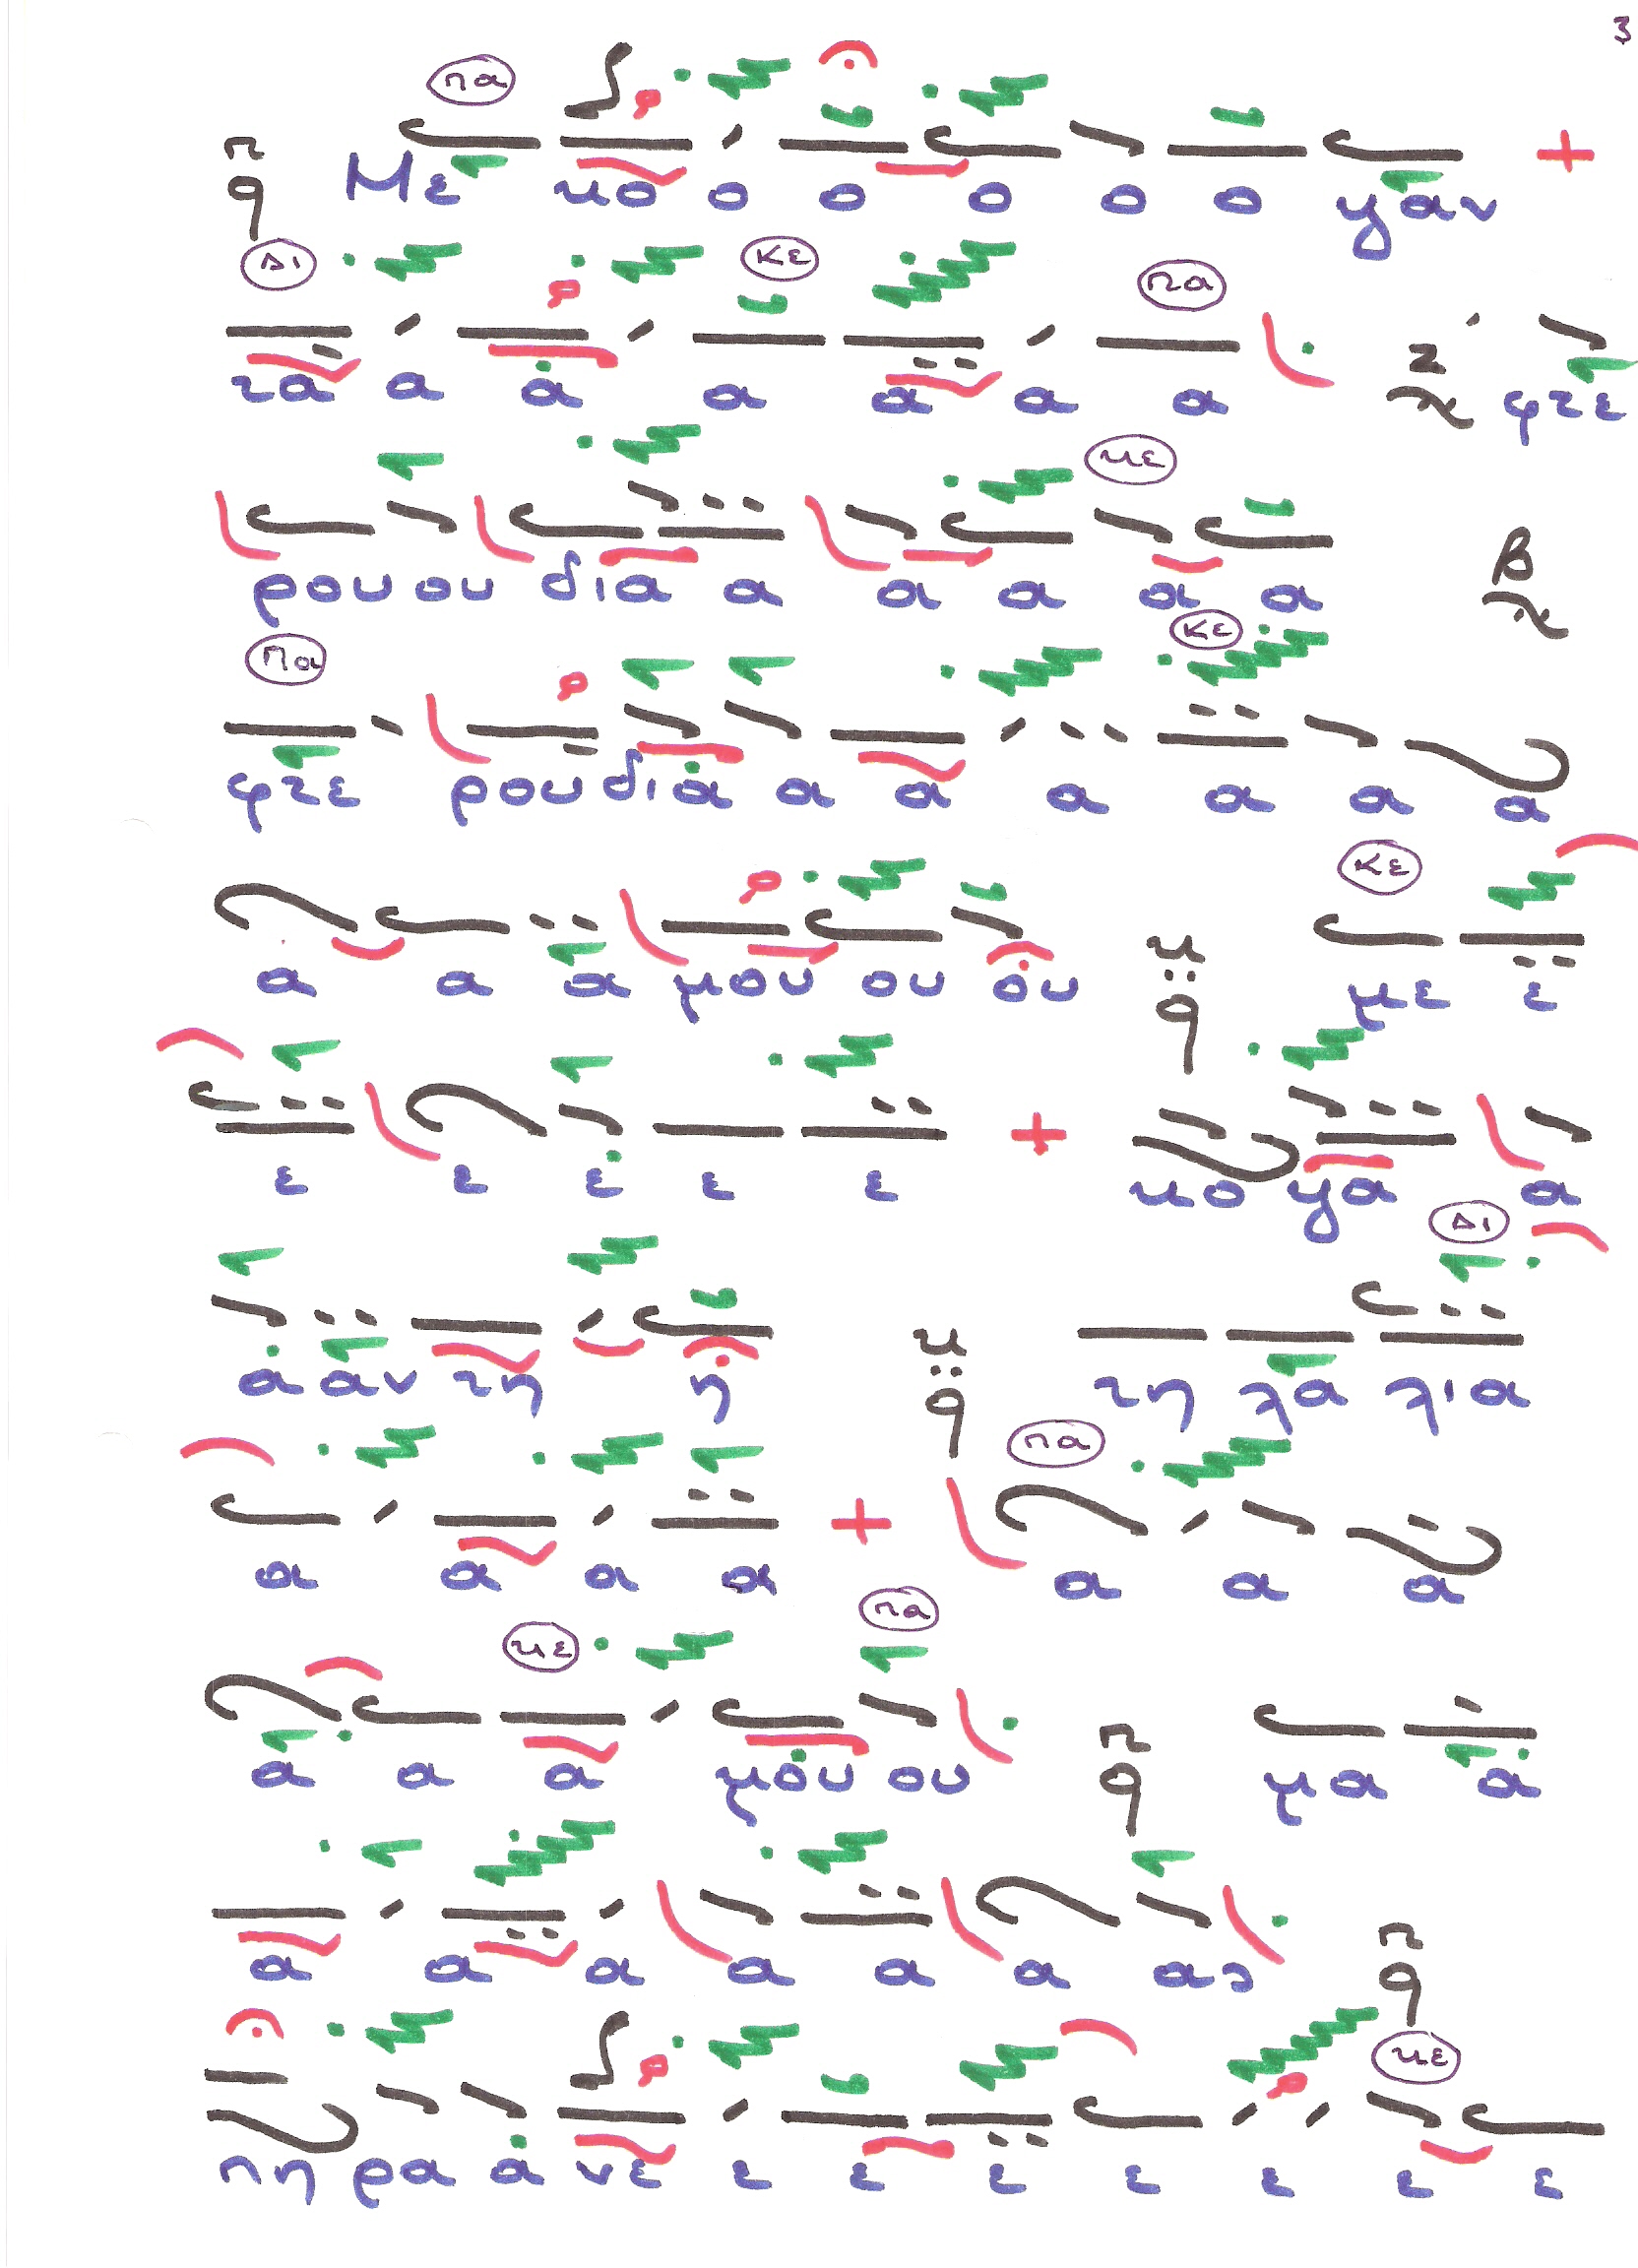 3
πα
Με κο ο ο ο ο ο γαν
Δι Κε πα
τα α α α α α α φτε
κε
ρου ου δια α α α α α
Πα Κε
φτε ρου δια α α α α α α
Κε
α α α μου ου ου με ε
ε ε ε ε ε κο γα α
Δι
α αν τη η τη λα λια
πα
α α α α α α α
κε πα
α α α μου ου μα α
α α α α α α ας
κε
πη ρα α νε ε ε ε ε ε ε ε